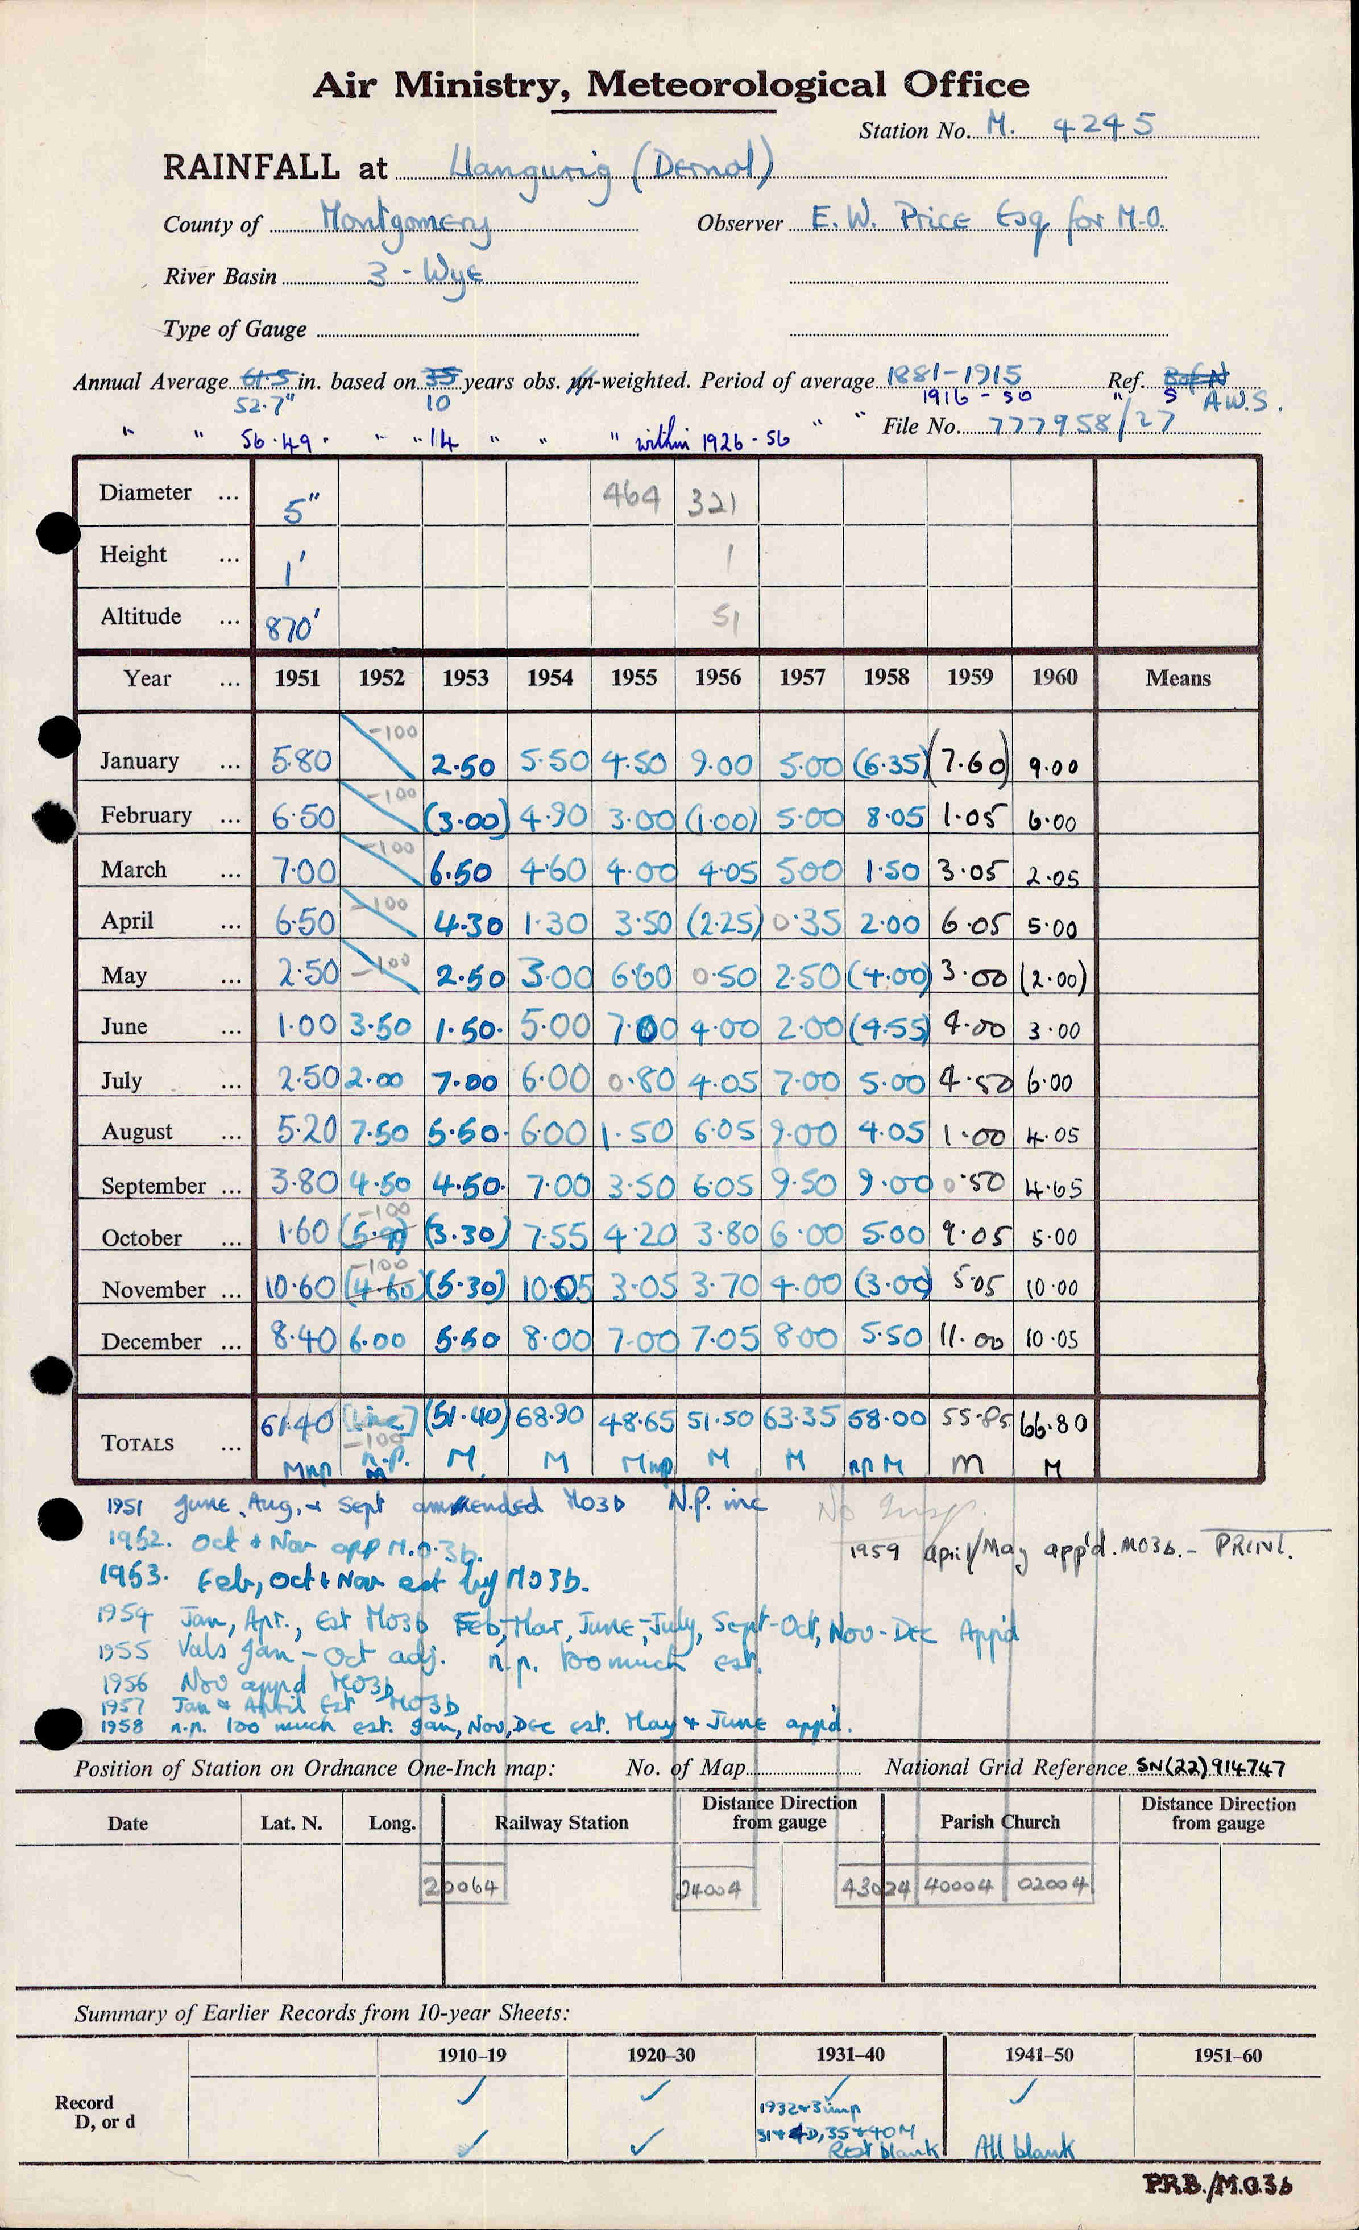 Air Ministry, Meteorological Office
Station No. M. 4245
RAINFALL at Llangurig (Dernol)
County of Montgomery Observer E. W. Price Esq for M.O.
River Basin 3 - Wye
Type of Gauge
Annual Average 61.5 in. based on 35 years obs. un-weighted. Period of average 1881-1915 Ref.
52.7" 10 1916 - 50 " S A.W.S.
" " 56.49 " " 14 " " " within 1926-56 " " File No. 777958/27
Diameter ... 5" 464 321
Height ... 1' 1
Altitude ... 870' 51
Year ... 1951 1952 1953 1954 1955 1956 1957 1958 1959 1960 Means
January ... 5.80 -100 2.50 5.50 4.50 9.00 5.00 (6.35) (7.60) 9.00
February ... 6.50 -100 (3.00) 4.90 3.00 (1.00) 5.00 8.05 1.05 6.00
March ... 7.00 -100 6.50 4.60 4.00 4.05 5.00 1.50 3.05 2.05
April ... 6.50 -100 4.30 1.30 3.50 (2.25) 0.35 2.00 6.05 5.00
May ... 2.50 -100 2.50 3.00 6.60 0.50 2.50 (4.00) 3.00 (2.00)
June ... 1.00 3.50 1.50. 5.00 7.00 4.00 2.00 (4.55) 4.00 3.00
July ... 2.50 2.00 7.00 6.00 0.80 4.05 7.00 5.00 4.50 6.00
August ... 5.20 7.50 5.50. 6.00 1.50 6.05 9.00 4.05 1.00 4.05
September ... 3.80 4.50 4.50. 7.00 3.50 6.05 9.50 9.00 0.50 4.65
October ... 1.60 -100 (3.30) 7.55 4.20 3.80 6.00 5.00 9.05 5.00
November ... 10.60 -100 (4.60) (5.30) 10.05 3.05 3.70 4.00 (3.00) 5.05 10.00
December ... 8.40 6.00 5.50 8.00 7.00 7.05 8.00 5.50 11.00 10.05
TOTALS ... 61.40 [Inc.] (51.40) 68.90 48.65 51.50 63.35 58.00 55.85 66.80
Mnp -100 n.p. m M. M Mnp M M np M m M
1951 June, Aug, + Sept ammended M03b N.P. inc
1952. Oct + Nov app M.O.3b.
1959 april/May app'd. M03b. - PRINT.
1953. Feb, Oct + Nov est by M03b.
1954 Jan, Apr., Est M03b Feb-Mar, June-July, Sept-Oct, Nov-Dec App'd
1955 Vals Jan - Oct adj. n.p. too much est.
1956 Nov appd M03b
1957 Jan + April Est M03b
1958 n.p. too much est. Jan, Nov, Dec est. May + June appd.
Position of Station on Ordnance One-Inch map: No. of Map National Grid Reference SN(22)914747
Date Lat. N. Long. Railway Station Distance Direction from gauge Parish Church Distance Direction from gauge
20064 24004 43024 40004 02004
Summary of Earlier Records from 10-year Sheets:
1910-19 1920-30 1931-40 1941-50 1951-60
Record
D, or d
1932+3 imp
31+4D, 35+40M
Rest blank All blank
P.R.B./M.O.3b